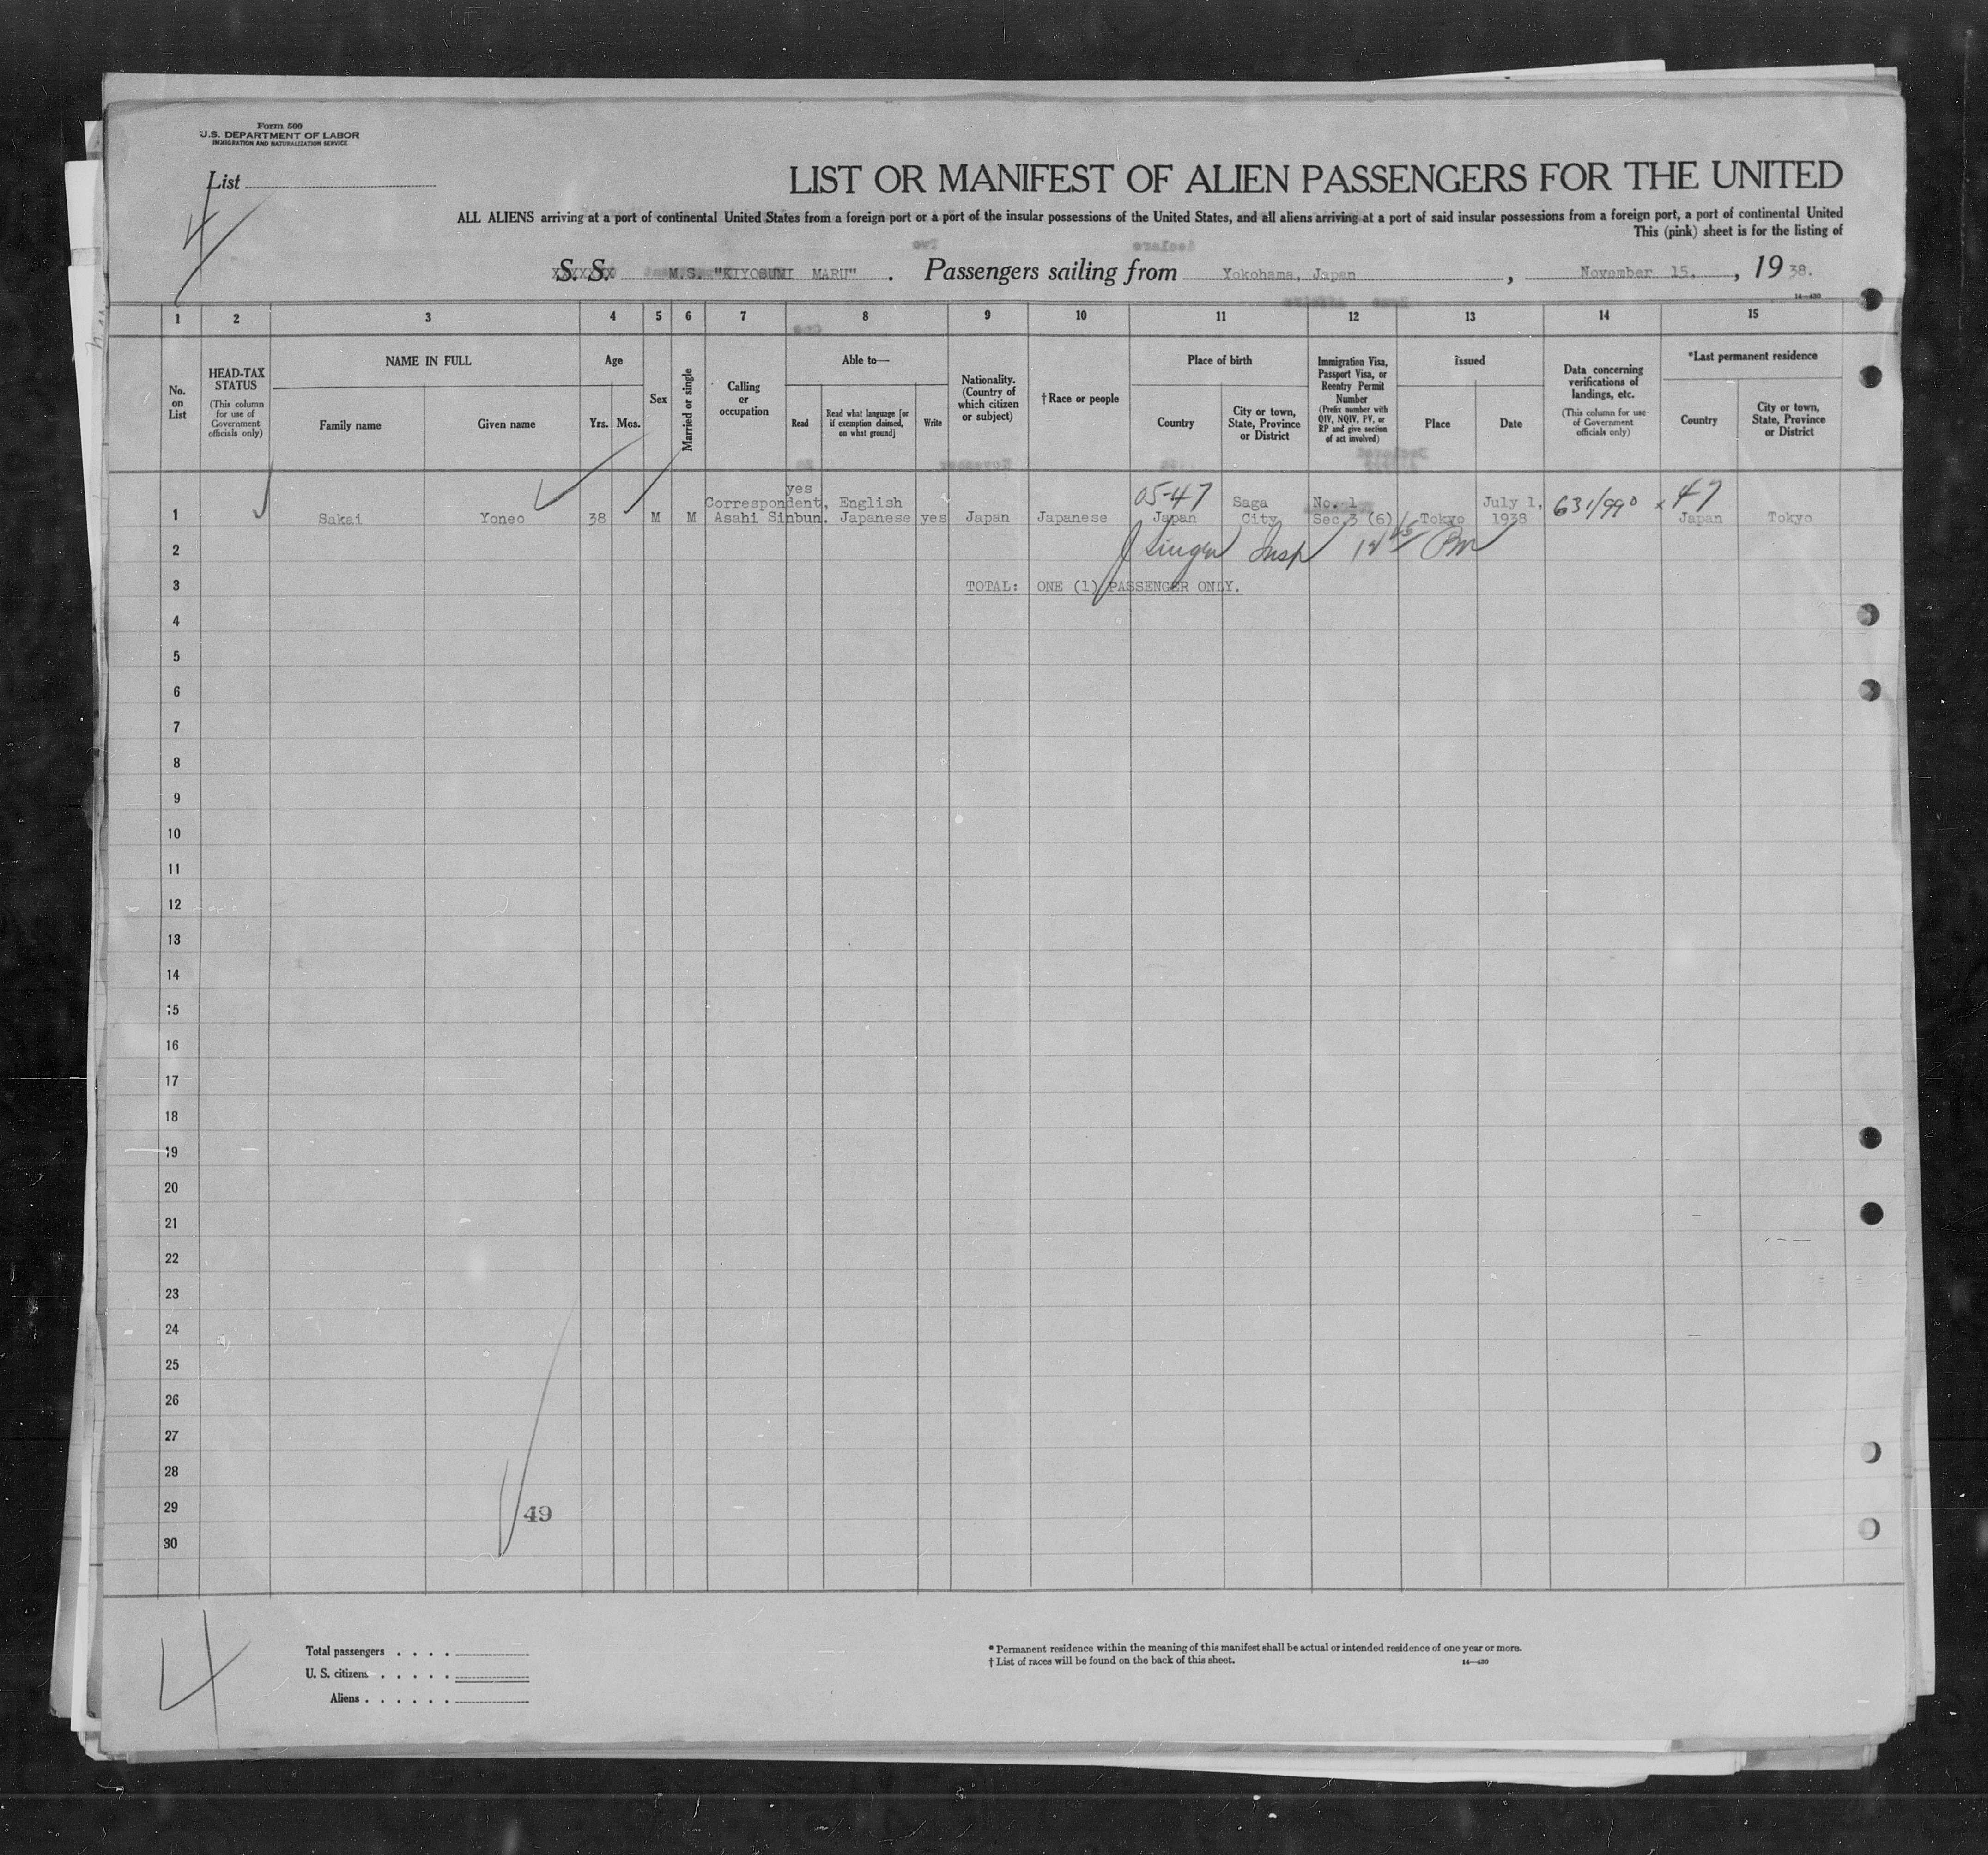 Form 500
U.S. DEPARTMENT OF LABOR
IMMIGRATION AND NATURALIZATION SERVICE
List
4
LIST OR MANIFEST OF ALIEN PASSENGERS FOR THE UNITED
ALL ALIENS arriving at a port of continental United States from a foreign port or a port of the insular possessions of the United States, and all aliens arriving at a port of said insular possessions from a foreign port, a port of continental United
This (pink) sheet is for the listing of
S. S. M.S. "KIYOSUMI MARU". Passengers sailing from Yokohama, Japan, November 15, , 19 38.
14—430
1 2 3 4 5 6 7 8 9 10 11 12 13 14 15
No. on List
HEAD-TAX STATUS (This column for use of Government officials only)
NAME IN FULL
Family name
Given name
Age
Yrs.
Mos.
Sex
Married or single
Calling or occupation
Able to—
Read
Read what language [or if exemption claimed, on what ground]
Write
Nationality. (Country of which citizen or subject)
†Race or people
Place of birth
Country
City or town, State, Province or District
Immigration Visa, Passport Visa, or Reentry Permit Number (Prefix number with QIV, NQIV, PV, or RP and give section of act involved)
Issued
Place
Date
Data concerning verifications of landings, etc. (This column for use of Government officials only)
*Last permanent residence
Country
City or town, State, Province or District
yes 05-47 47
Correspondent, English Saga No. 1 July 1, 631/990 x
1 Sakai Yoneo 38 M M Asahi Sinbun. Japanese yes Japan Japanese Japan City Sec.3 (6) Tokyo 1938 Japan Tokyo
2 J Singer Insp
3 TOTAL: ONE (1) PASSENGER ONLY.
4
5
6
7
8
9
10
11
12
13
14
15
16
17
18
19
20
21
22
23
24
25
26
27
28
29 49
30
4
Total passengers . . . .
U. S. citizens . . . . .
Aliens . . . . . .
* Permanent residence within the meaning of this manifest shall be actual or intended residence of one year or more.
† List of races will be found on the back of this sheet. 14—430